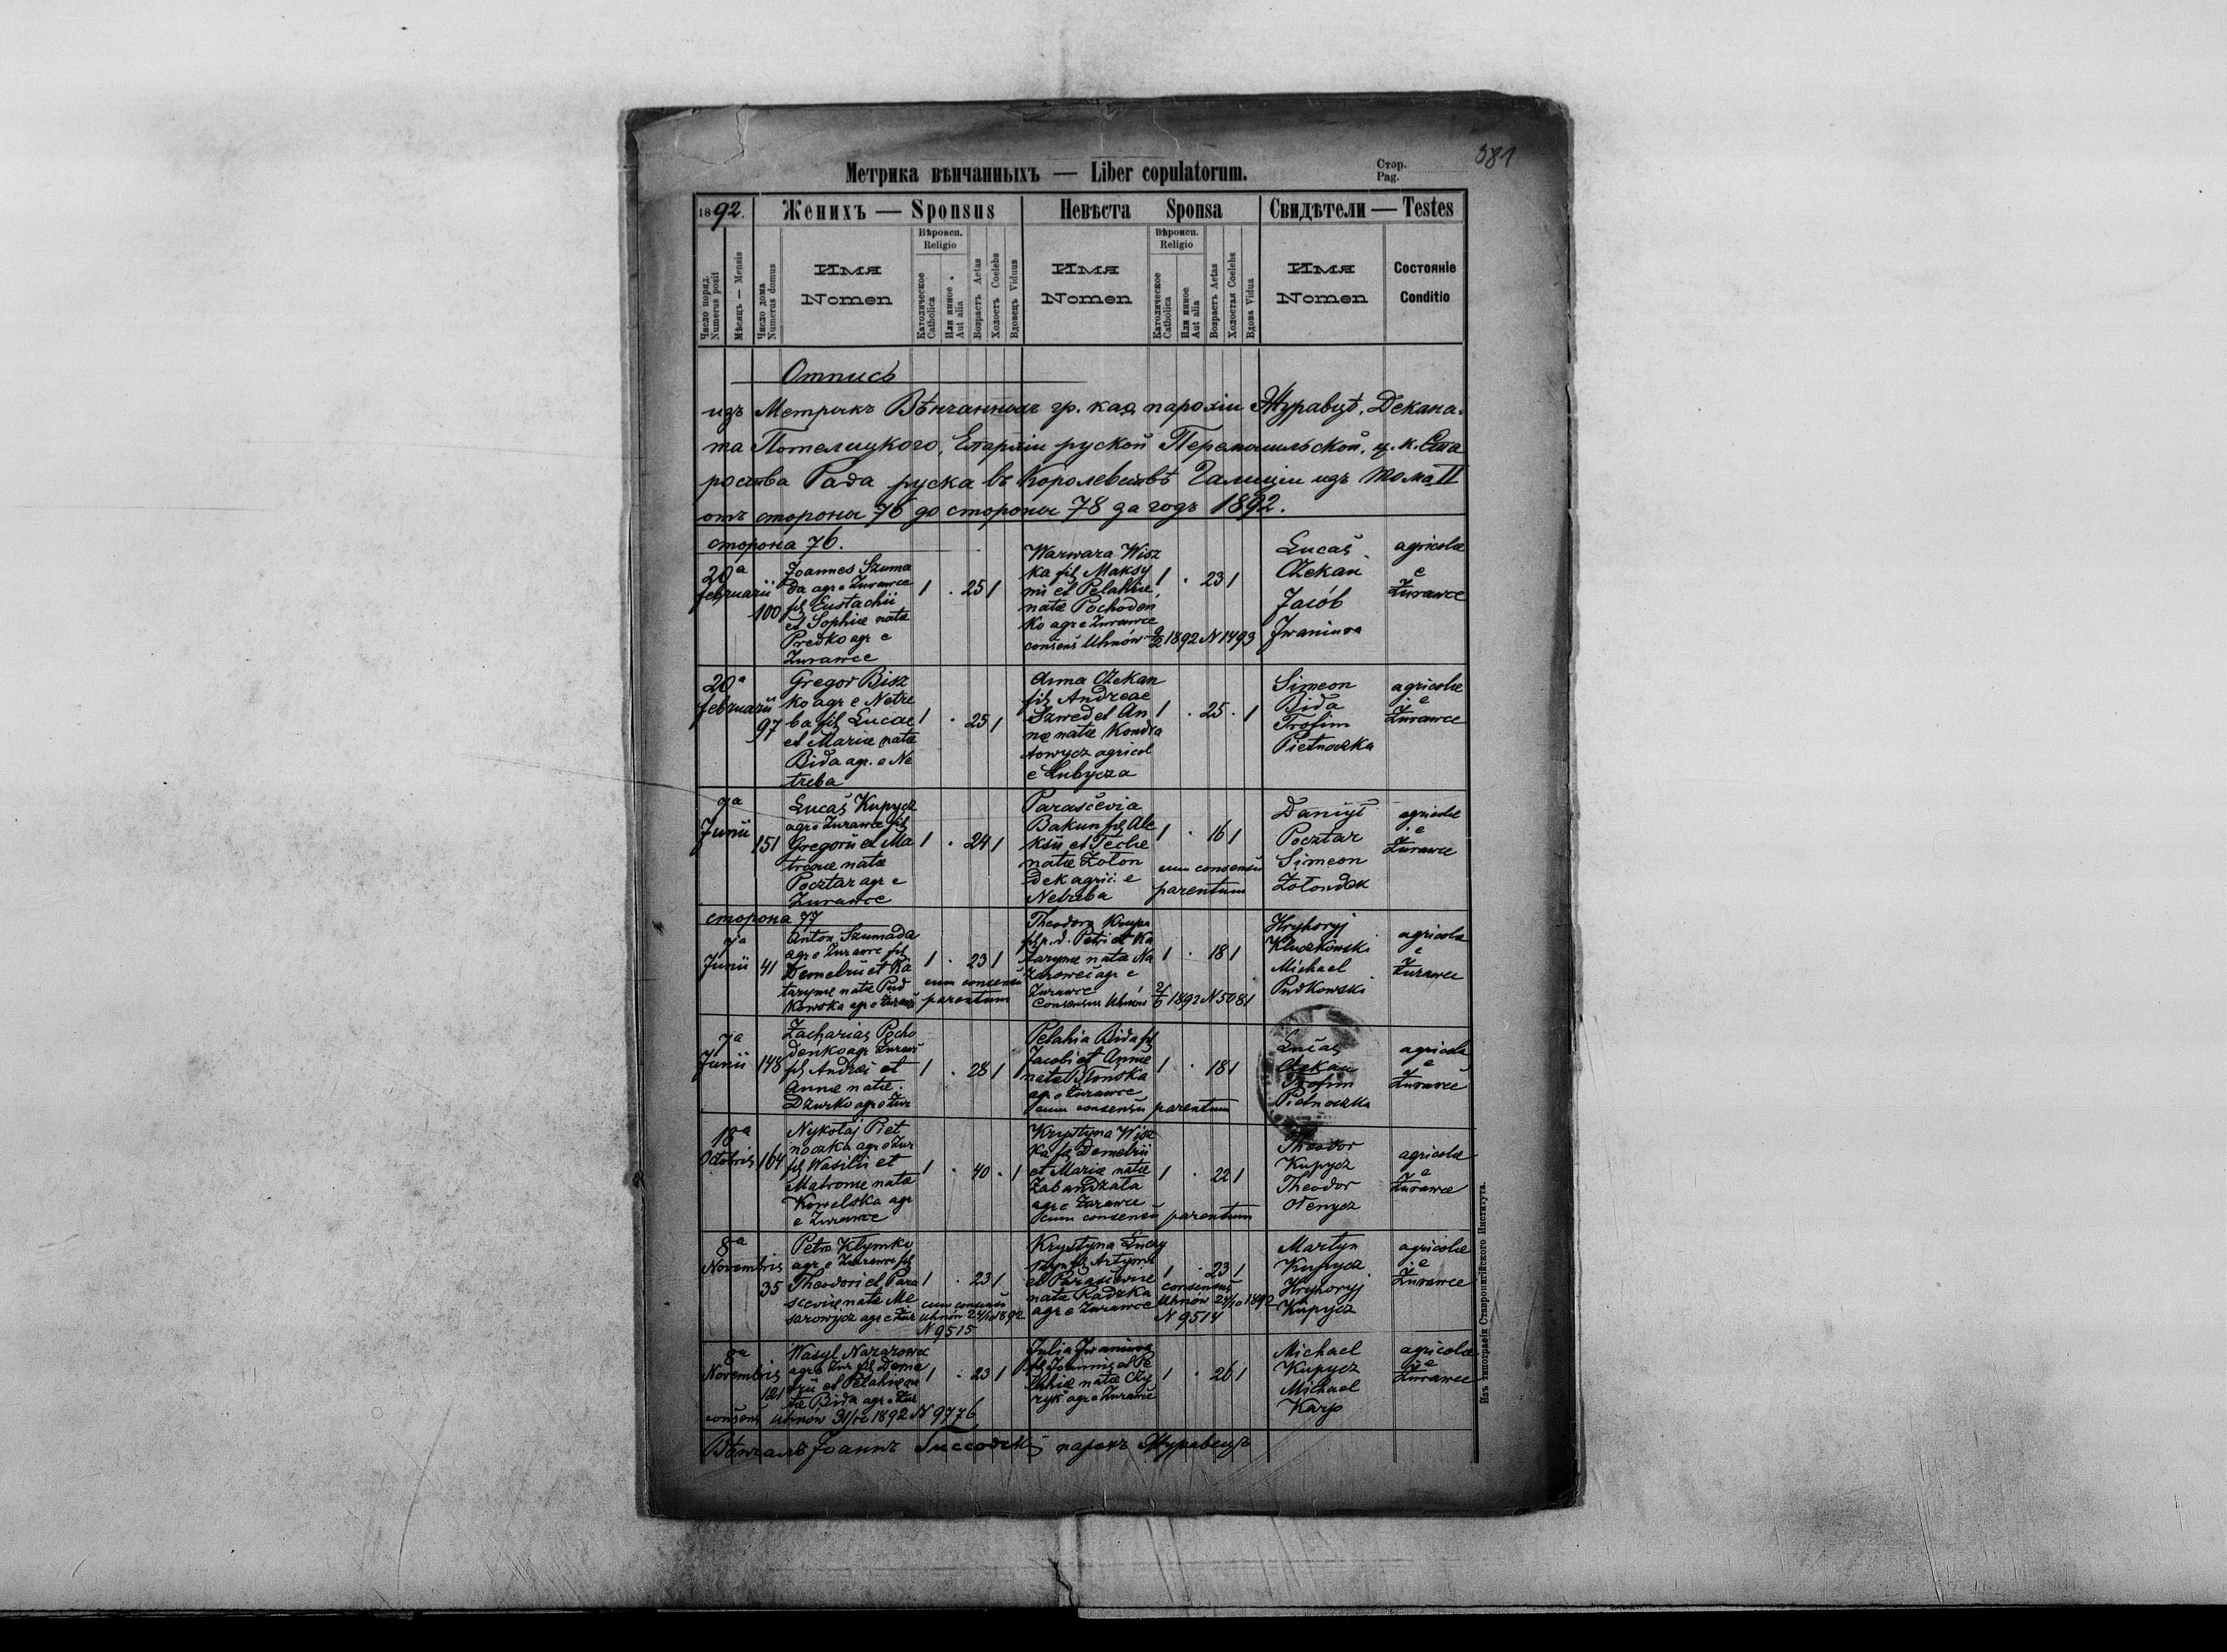 381
Метрика вѣнчанныхъ — Liber copulatorum.
Стор.
Pag.
1892.
Женихъ — Sponsus
Невѣста Sponsa
Свидѣтели — Testes
Число поряд.
Numerus posit
Мѣсяцъ — Mensis
Число дома
Numerus domus
Имя
Nomen
Вѣроисп.
Religio
Католическое
Catholica
Или инное
Aut alia
Возрастъ Aetas
Холостъ Coelebs
Вдовецъ Viduus
Имя
Nomen
Вѣроисп.
Religio
Католическое
Catholica
Или инное
Aut alia
Возрастъ Aetas
Холостая Coelebs
Вдова Vidua
Имя
Nomen
Состояніе
Conditio
Отпись
изъ Метрыкъ Вѣнчанныхъ гр. кап. парохіи Журавцѣ, Декана-
та Потелицкого, Епархіи руской Перемышльской, ц. к. Ста
роства Рада руска въ Королевствѣ Галиціи изъ тома II
отъ стороны 76 до стороны 78 за годъ 1892.
сторона 76.
20ª
februarii
100
Joannes Szuma
da agr e Zurawce
fil Eustachii
et Sophiæ natæ
Predko agr e
Zurawce
1 . 25 1
Warwara Wisz
ka fil Maksy
mi et Pelahiæ,
natæ Pochoden
ko agr e Zurawce
consens Uhnów 9/2 1892 N 1493
1 . 23 1
Lucas
Czekan
Jacób
Iwaniura
agricolæ
e
Zurawce
20ª
februarii
97
Gregor Bisz
ko agr e Netre
ba fil Lucae
et Mariæ natæ
Bida agr. e Ne
treba
1 . 25 1
Anna Czekan
fil Andreae
Szwed et An
næ natæ Kondra
towycz agricol
e Lubycza
1 . 25 . 1
Simeon
Bida
Trofim
Pietnoczka
agricolæ
e
Zurawce
7ª
Junii
151
Lucas Kupycz
agr e Zurawce fil
Gregorii et Ma
tronæ natæ
Pocztar agr e
Zurawce
1 . 24 1
Parascevia
Bakun fil Ale
ksii et Teclæ
natæ Zolon
dek agric. e
Netreba
1 . 16 1
cum consensu
parentum
Daniyl
Pocztar
Simeon
Zolondek
agricolæ
e
Zurawce
сторона 77
7ª
Junii
41
Anton Szumada
agr e Zurawce fil
Demetrii et Ka
tarynæ natæ Pud
kowska agr e Zurawce
1 . 23 1
cum consensu
parentum
Theodora Krupa
fil p. d. Petri et Ka
tarynæ natæ Na
zarowecz agr e
Zurawce
Consensus Uhnów 2/6 1892 N 5081
1 . 18 1
Hryhoryj
Kluczkowski
Michael
Pudkowski
agricolæ
e
Zurawce
7ª
Junii
148
Zacharias Pocho
denko agr Zurawce
fil Andrei et
Annæ natæ
Dzurko agr e Zur
1 . 28 1
Pelahia Bida fil
Jacobi et Annæ
natæ Blonska
agr e Zurawce
cum consensu parentum
1 . 18 1
Lucas
Czekan
Trofim
Pietnoczka
agricolæ
e
Zurawce
18ª
Octobris
164
Nykolaj Piet
noczka agr e Zur
fil Wasilii et
Matronæ natæ
Kowelska agr
e Zurawce
1 . 40 . 1
Krystyna Wisz
ka fil Demetrii
et Mariæ natæ
Zabandzała
agr e Zurawce
cum consensu parentum
1 . 22 1
Theodor
Kupycz
Theodor
Wenycz
agricolæ
e
Zurawce
8ª
Novembris
35
Petro Klymko
agr e Zurawce fil
Theodori et Para
sceviæ natæ Me
sarowycz agr e Zur
1 . 23 1
cum consensu
Uhnów 24/10 1892
N 9515
Krystyna
fil Artymi
et Parasceviæ
natæ Radzka
agr e Zurawce
1 . 23 1
consensus
Uhnów 24/10 1892
N 9514
Martyn
Kupycz
Hryhoryj
Kupycz
agricolæ
e
Zurawce
8ª
Novembris
121
Wasyl Nazarowecz
agr e Zur fil Deme
trii et Pelahiæ na
tæ Bida agr e Zur
consens Uhnów 31/10 1892 N 9776
1 . 23 1
Julia Iwaniura
fil Joannis et Pe
lahiæ natæ
agr e Zurawce
1 . 26 1
Michael
Kupycz
Michael
Karp
agricolæ
e
Zurawce
Вѣнчалъ Іоаннъ парохъ Журавець
Изъ типографіи Ставропигійского Института.